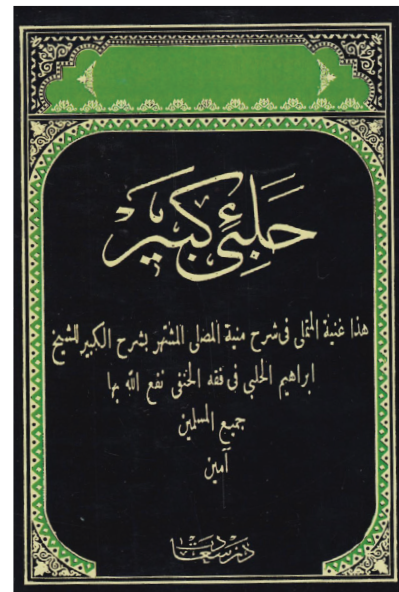 حَلَبِیْ كَبِیرْ
هذا غنية المتملى فى شرح منية المصلى المشتهر بشرح الكبير للشيخ
ابراهيم الحلبى فى فقه الحنفى نفع الله بها
جميع المسلمين
آمين
در سعادت